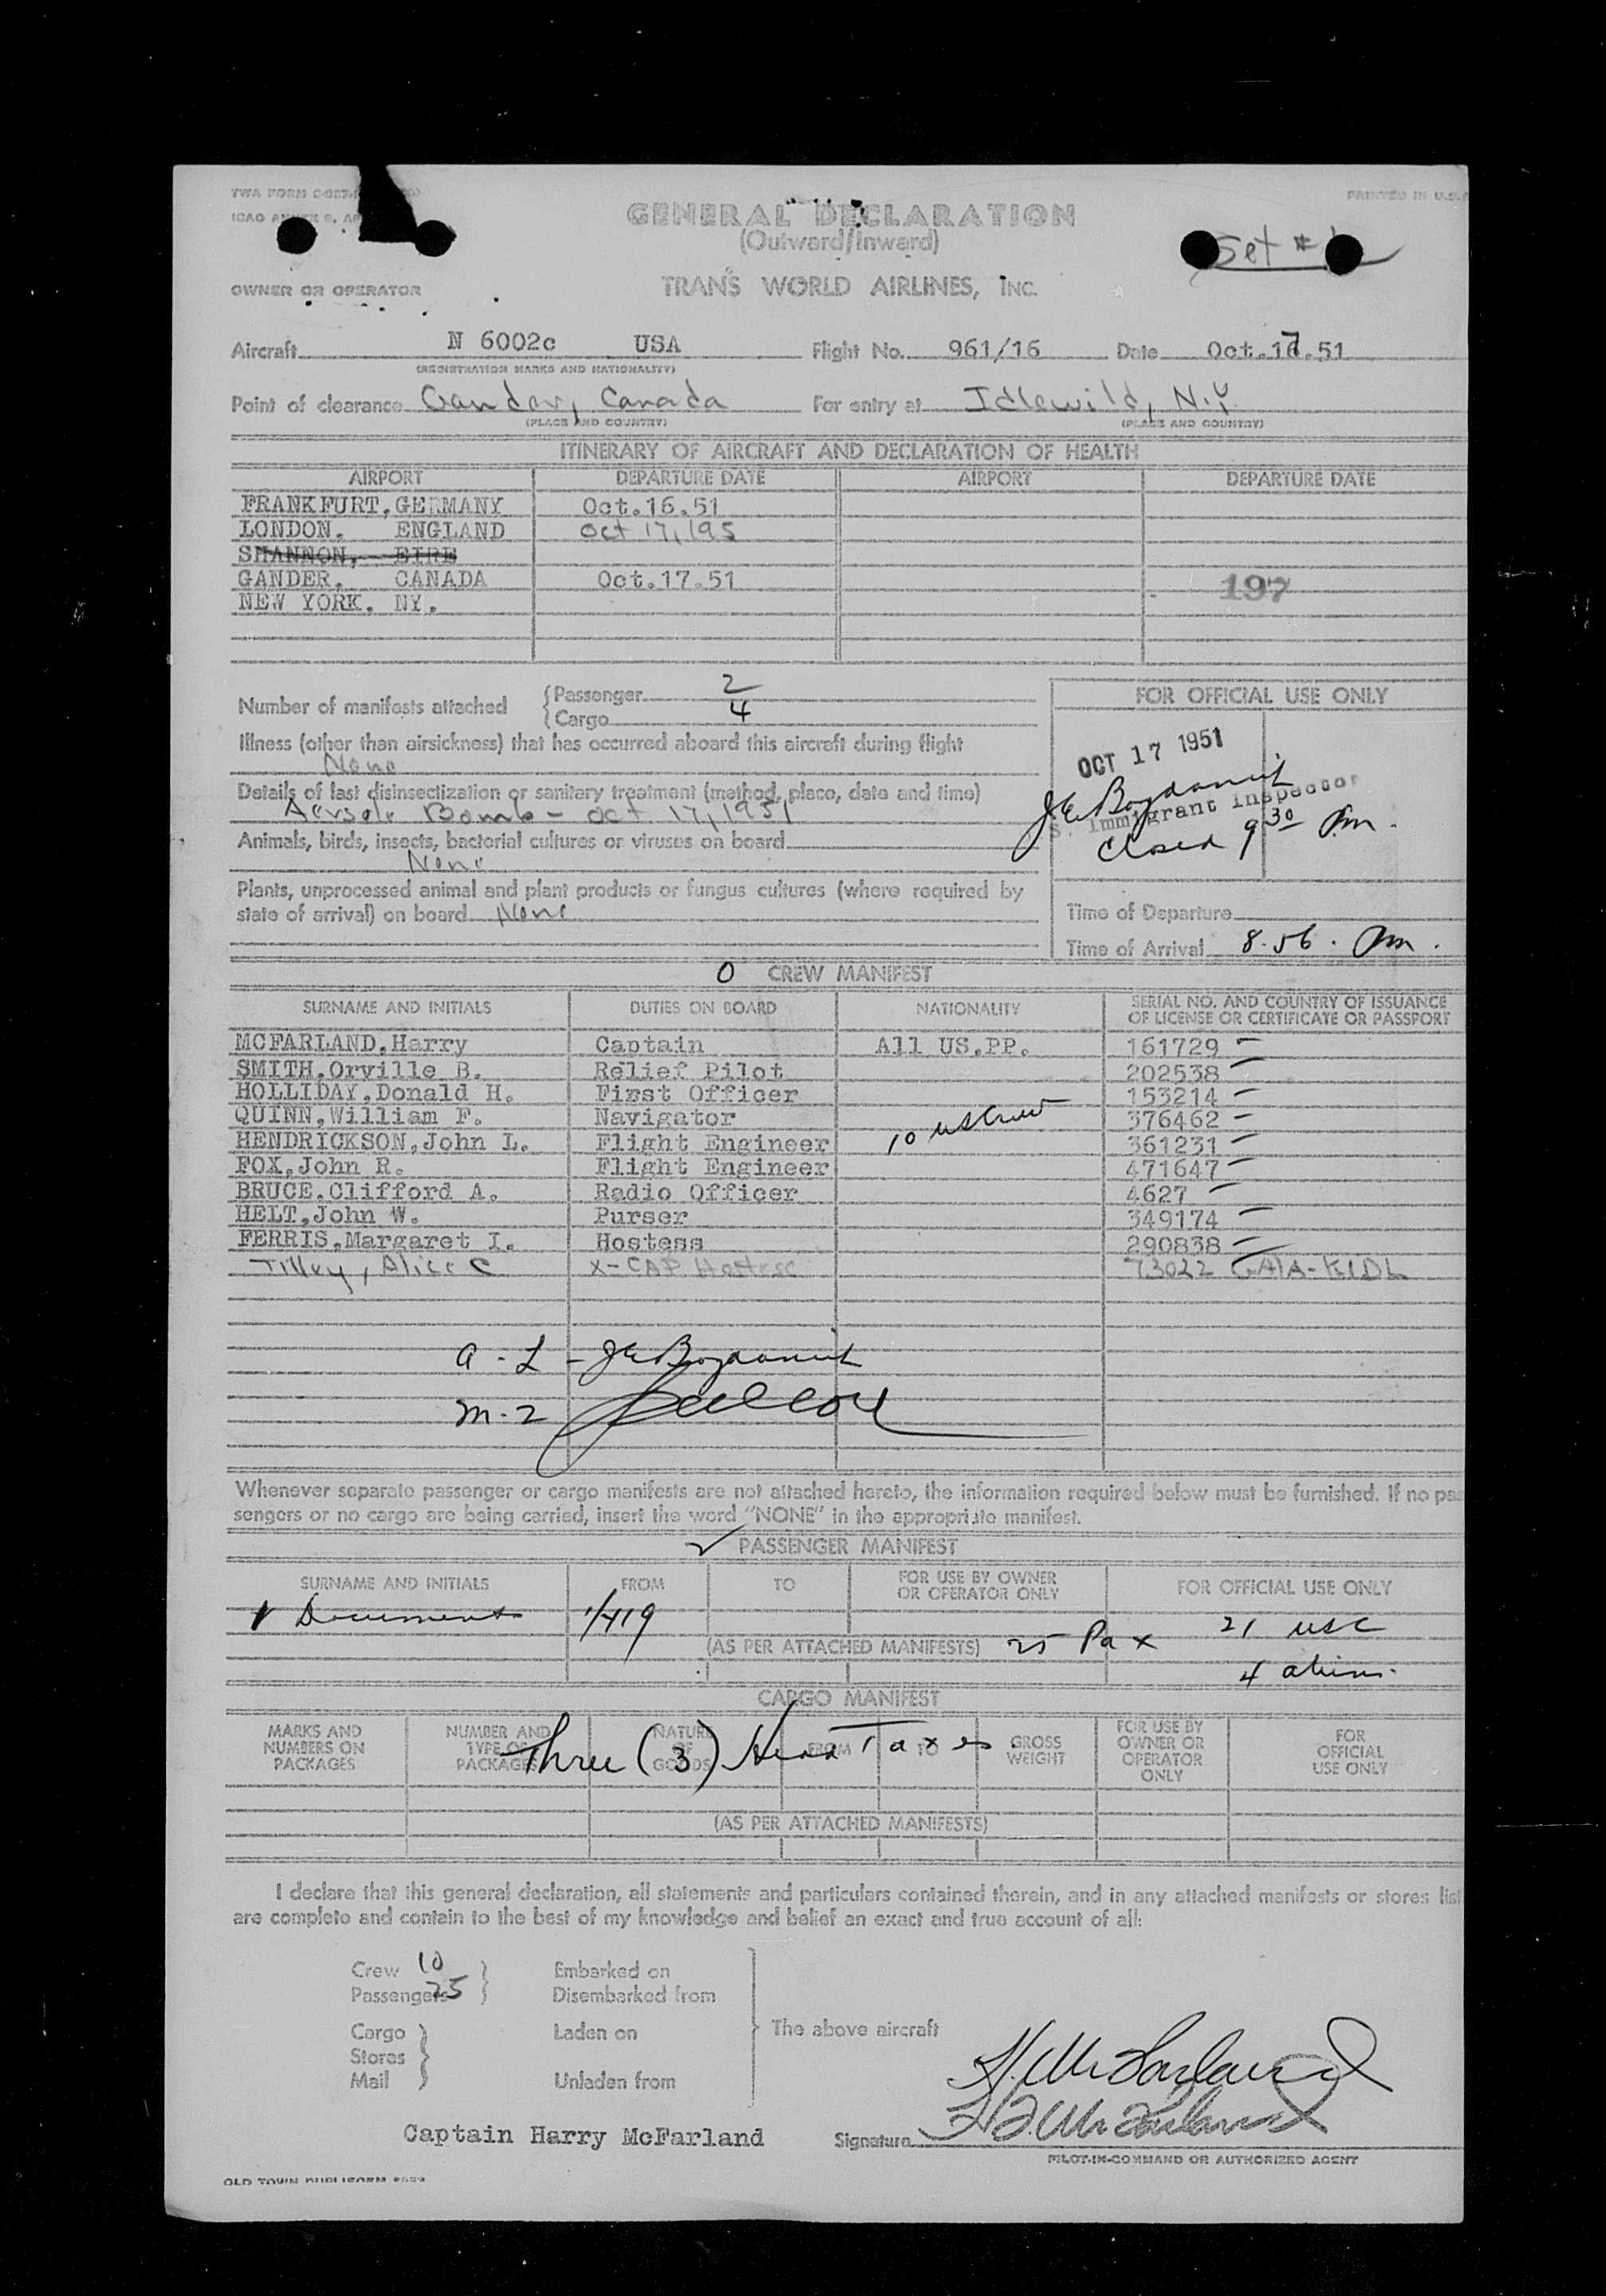 TWA FORM
ICAO ANNEX 9, AP
PRINTED IN U.S.A
GENERAL DECLARATION
(Outward/Inward)
Set #
OWNER OR OPERATOR
TRANS WORLD AIRLINES, INC.
Aircraft N 6002c USA Flight No. 961/16 Date Oct.17.51
(REGISTRATION MARKS AND NATIONALITY)
Point of clearance Gander, Canada For entry at Idlewild, N.Y.
(PLACE AND COUNTRY) (PLACE AND COUNTRY)
ITINERARY OF AIRCRAFT AND DECLARATION OF HEALTH
AIRPORT DEPARTURE DATE AIRPORT DEPARTURE DATE
FRANKFURT, GERMANY Oct.16.51
LONDON. ENGLAND Oct 17, 195
SHANNON, EIRE
GANDER, CANADA Oct.17.51 197
NEW YORK. NY.
Number of manifests attached
Passenger 2
Cargo 4
FOR OFFICIAL USE ONLY
Illness (other than airsickness) that has occurred aboard this aircraft during flight
None
Details of last disinsectization or sanitary treatment (method, place, date and time)
Aersole Bomb - Oct 17, 1951
Animals, birds, insects, bacterial cultures or viruses on board
None
Plants, unprocessed animal and plant products or fungus cultures (where required by
state of arrival) on board None
OCT 17 1951
S. Immigrant Inspector
Closed 9 30 Pm.
Time of Departure
Time of Arrival 8.56. Pm.
0 CREW MANIFEST
SURNAME AND INITIALS DUTIES ON BOARD NATIONALITY SERIAL NO. AND COUNTRY OF ISSUANCE OF LICENSE OR CERTIFICATE OR PASSPORT
MCFARLAND, Harry Captain All US.PP. 161729
SMITH, Orville B. Relief Pilot 202538
HOLLIDAY, Donald H. First Officer 153214
QUINN, William F. Navigator 10 US Crew 376462
HENDRICKSON, John L. Flight Engineer 361231
FOX, John R. Flight Engineer 471647
BRUCE, Clifford A. Radio Officer 4627
HELT, John W. Purser 349174
FERRIS, Margaret I. Hostess 290838
Tilley, Alice C X-CAP Hostess 73022
a - L -
m - 2
Whenever separate passenger or cargo manifests are not attached hereto, the information required below must be furnished. If no pas
sengers or no cargo are being carried, insert the word "NONE" in the appropriate manifest.
PASSENGER MANIFEST
SURNAME AND INITIALS FROM TO FOR USE BY OWNER OR OPERATOR ONLY FOR OFFICIAL USE ONLY
1 Documents 1/419 21 USC
(AS PER ATTACHED MANIFESTS) 25 Pax
4 aliens.
CARGO MANIFEST
MARKS AND NUMBERS ON PACKAGES NUMBER AND TYPE OF PACKAGES NATURE OF GOODS FROM TO GROSS WEIGHT FOR USE BY OWNER OR OPERATOR ONLY FOR OFFICIAL USE ONLY
Three (3) Head Taxes
(AS PER ATTACHED MANIFESTS)
I declare that this general declaration, all statements and particulars contained therein, and in any attached manifests or stores list
are complete and contain to the best of my knowledge and belief an exact and true account of all:
Crew 10 Embarked on
Passengers 25 Disembarked from
Cargo Laden on The above aircraft
Stores
Mail Unladen from
H. McFarland
Captain Harry McFarland Signature H. McFarland
PILOT-IN-COMMAND OR AUTHORIZED AGENT
OLD TOWN DUPLIFORM